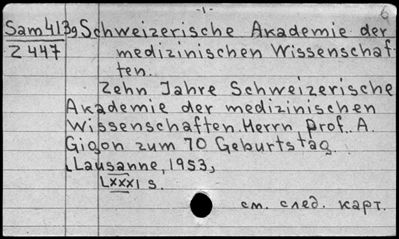 -1-
6
Sam 4139 Schweizerische Akademie der
Z 447 medizinischen Wissenschaf-
ten.
Zehn Jahre Schweizerische
Akademie der medizinischen
Wissenschaften. Herrn Prof. A.
Gigon zum 70 Geburtstag.
(Lausanne, 1953)
LXXXI s.
см. след. карт.